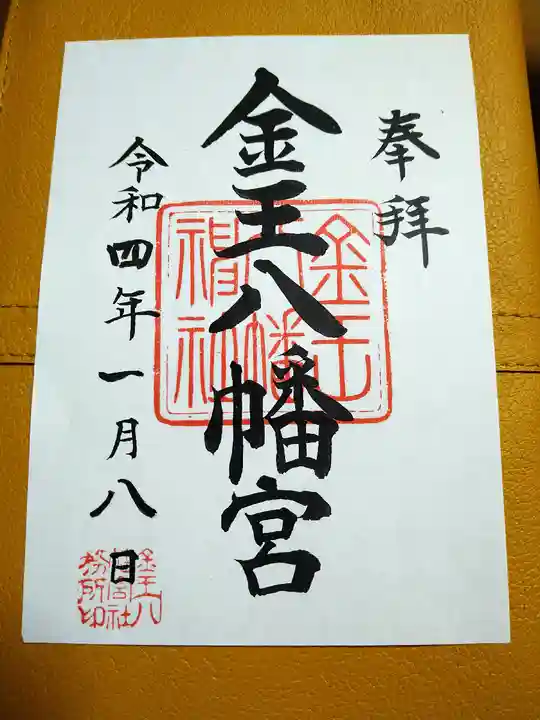 奉拝
金王八幡宮
金王八幡神社
令和四年一月八日
金王八幡神社社務所印